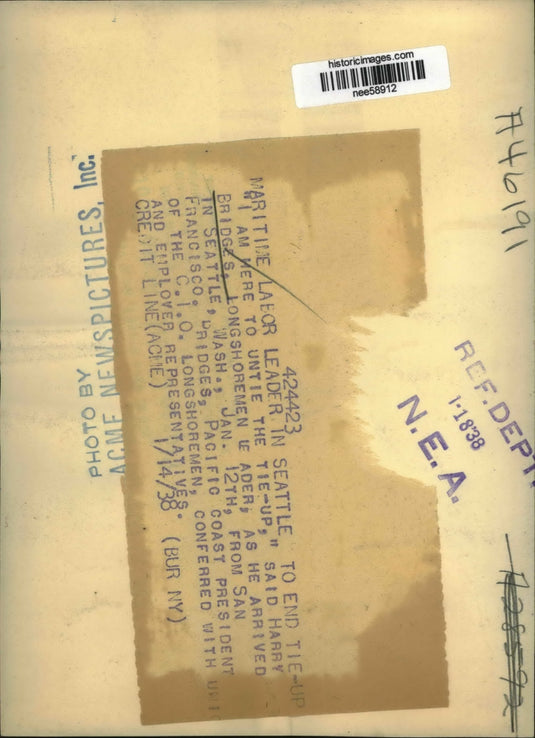 historicimages.com
nee58912
A46191
424423
MARITIME LABOR LEADER IN SEATTLE TO END TIE-UP
"I AM HERE TO UNTIE THE TIE-UP," SAID HARRY
BRIDGES, LONGSHOREMEN LE ADER, AS HE ARRIVED
IN SEATTLE, WASH., JAN. 12TH, FROM SAN
FRANCISCO, BRIDGES, PACIFIC COAST PRESIDENT
OF THE C.I.O. LONGSHOREMEN, CONFERRED WITH UNIO
AND EMPLOYER REPRESENTATIVES.
CREDIT LINE(ACME) 1/14/38 (BUR NY)
PHOTO BY
ACME NEWSPICTURES, Inc.
REF. DEPT.
1-18'38
N.E.A.